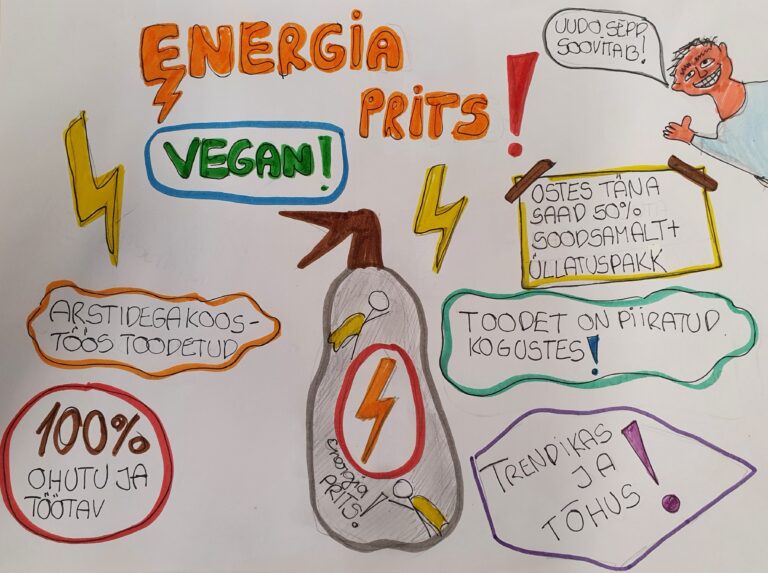 ENERGIA
PRITS!
UUDO SEPP
SOOVITAB!
VEGAN!
OSTES TÄNA
SAAD 50%
SOODSAMALT+
ÜLLATUSPAKK
ARSTIDEGA KOOS-
TÖÖS TOODETUD
TOODET ON PIIRATUD
KOGUSTES!
100%
OHUTU JA
TÖÖTAV
Energia
PRITS!
TRENDIKAS
JA
TÕHUS!